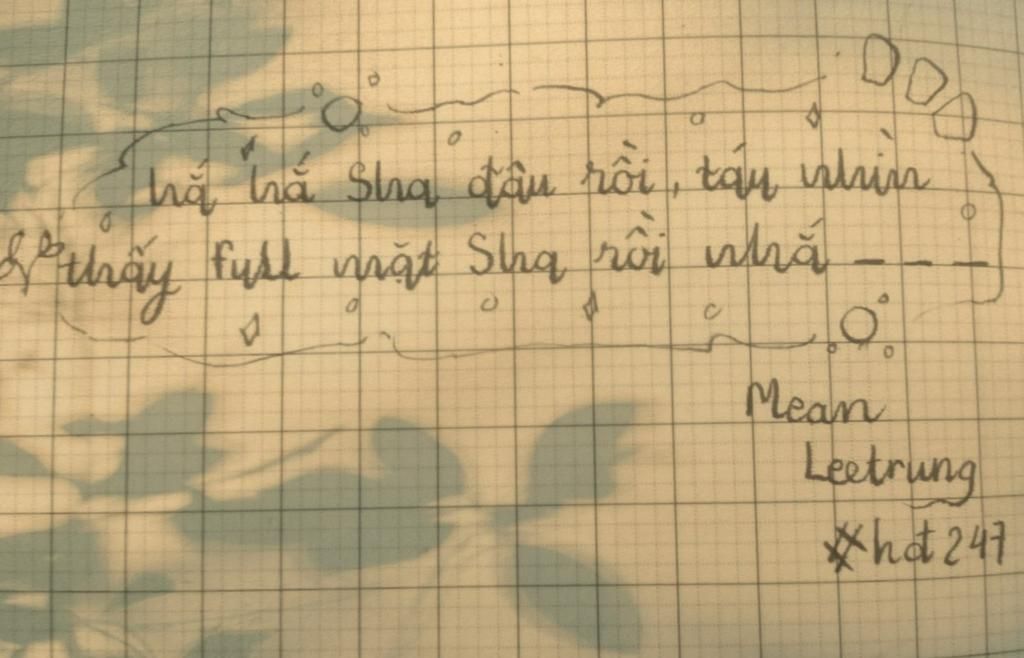 hả hả Sha đâu rồi, táu nhìn
thấy full mặt Sha rồi nhả _ _ _
Mean
Leetrung
#hdt247